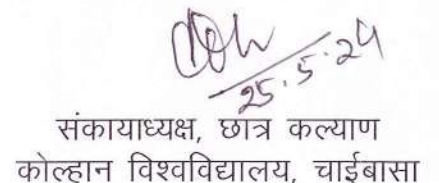 25.5.24
संकायाध्यक्ष, छात्र कल्याण
कोल्हान विश्वविद्यालय, चाईबासा